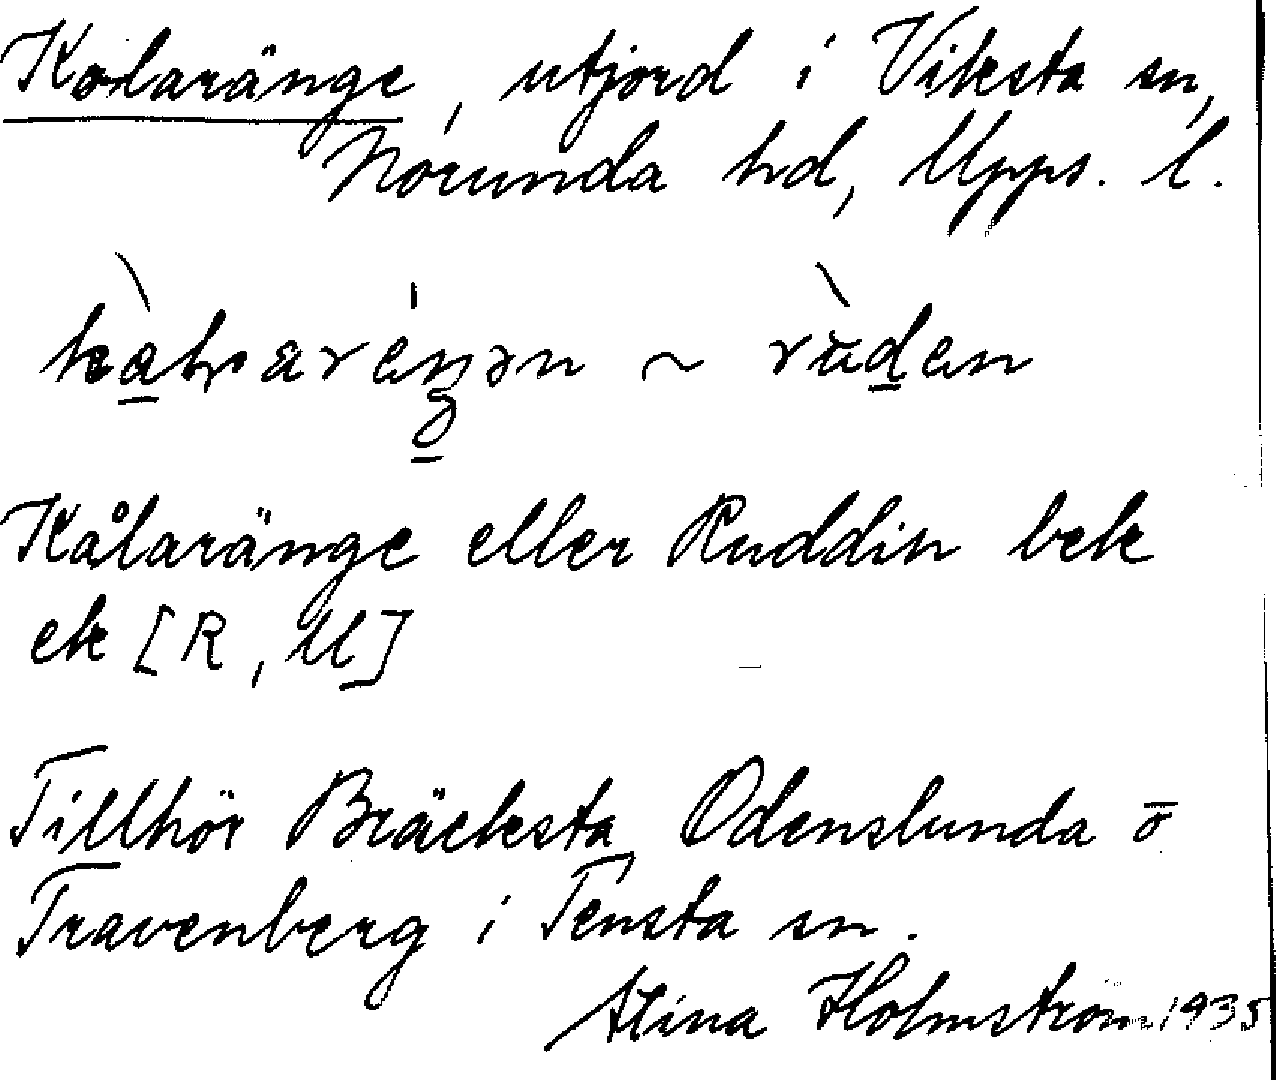 Kolaränge, utjord i Viksta sn,
Norunda hd, Upps. l.
~
Kålaränge eller Ruddin bek
ek [R, U]
Tillhör Bräcksta, Odenslunda o
Travenberg i Tensta sn.
Stina Holmström 1935